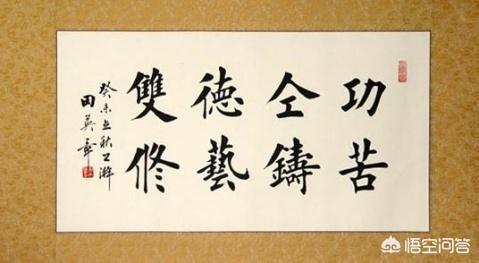 功苦
仝鑄
德藝
雙修
癸未立秋
田英章
悟空问答